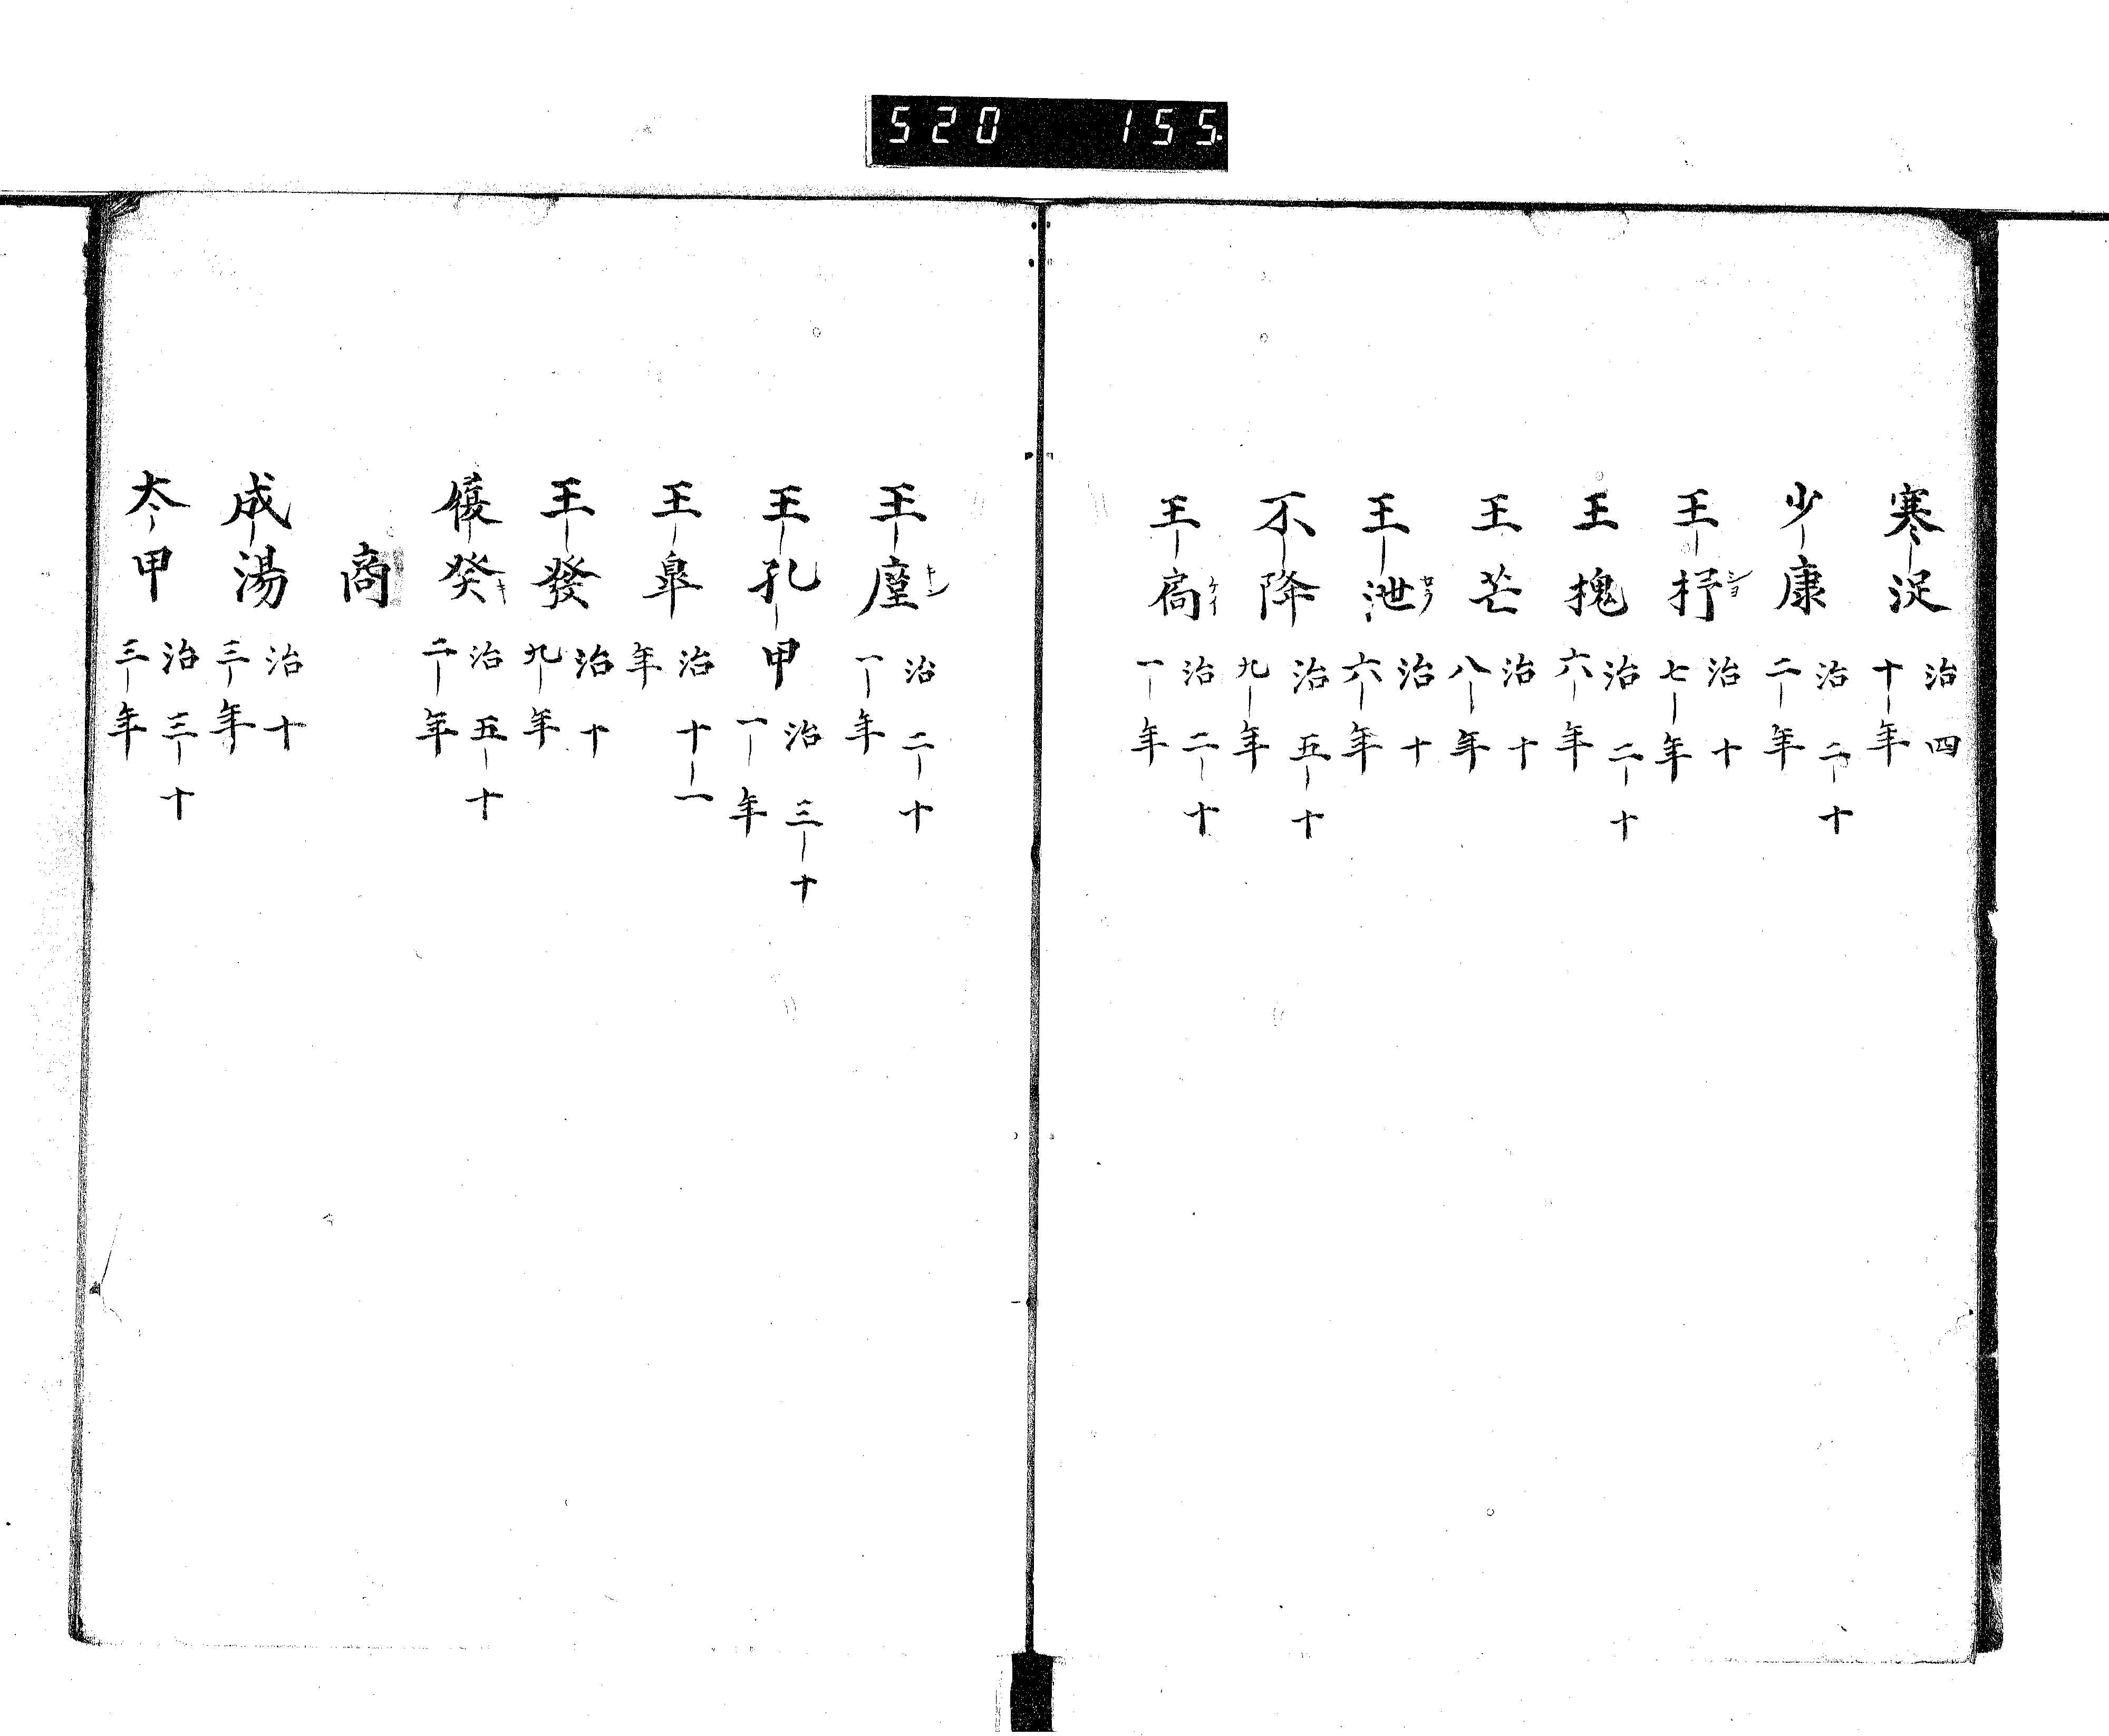 520 155
寒浞 治四十年
少康 治二十二年
王杼 ショ 治十七年
王槐 治二十六年
王芒 治十八年
王泄 セツ 治十六年
不降 治五十九年
王扃 ケイ 治二十一年
王廑 キン 治二十一年
王孔甲 治三十一年
王皐 治十一年
王發 治十九年
履癸 キ 治五十二年
商
成湯 治十三年
太甲 治三十三年